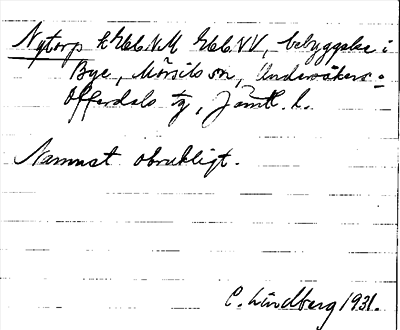 Nytorp k, bebyggelse i
Bye, Mörsils sn, Undersåkers o
Offerdals tg, Jämtl. l.
Namnet obrukligt.
C. Lindberg 1931.